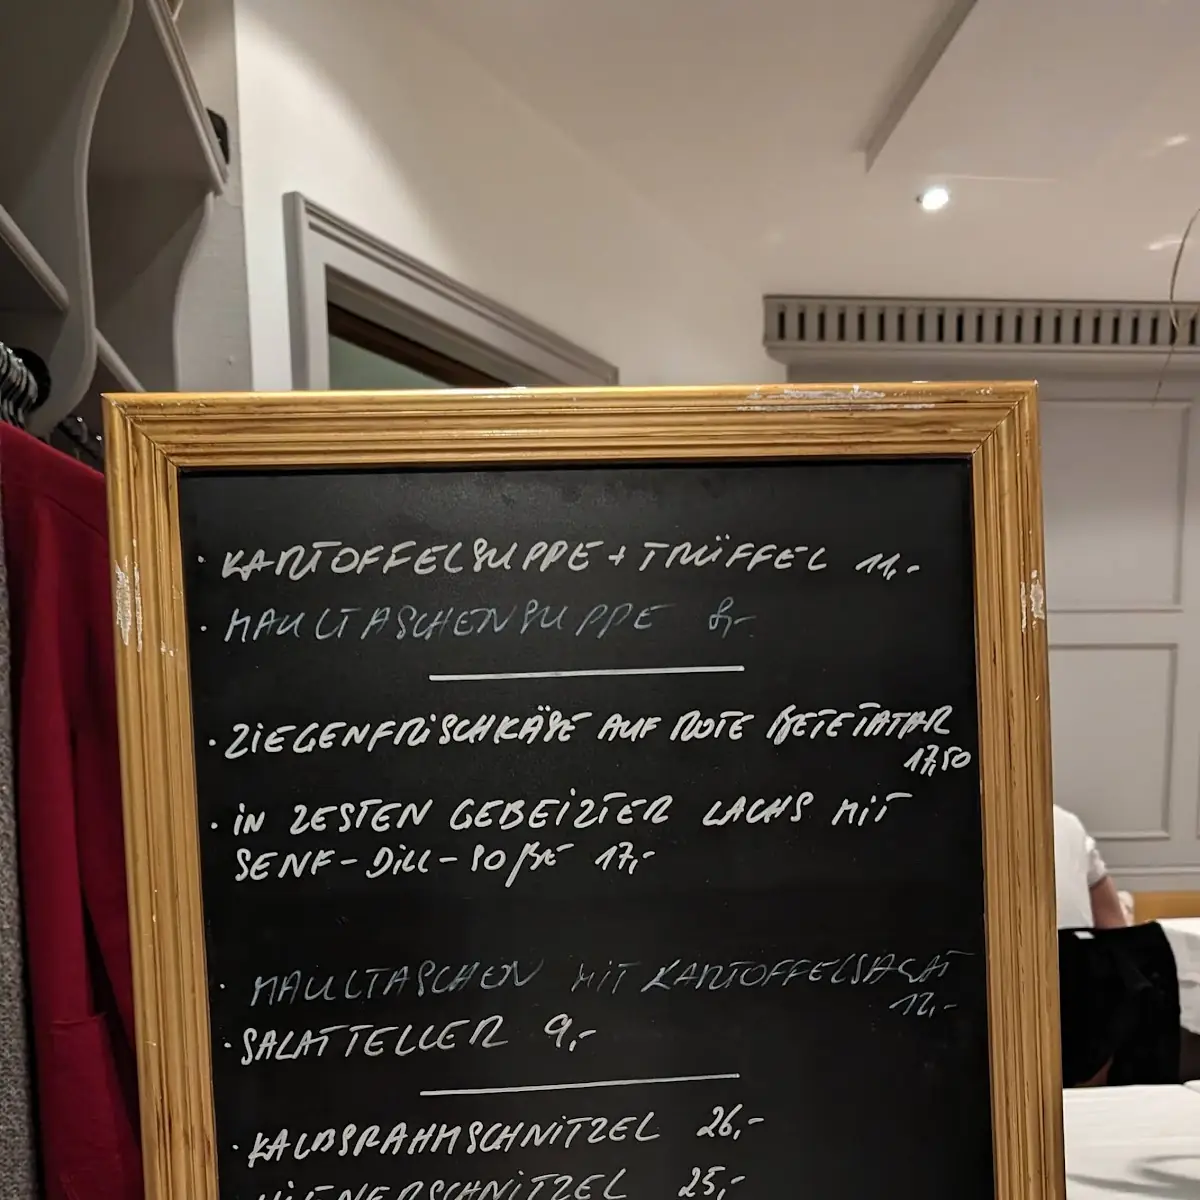 · KARTOFFELSUPPE + TRÜFFEL 11,-
· MAULTASCHENSUPPE 8,-
· ZIEGENFRISCHKÄSE AUF ROTE BETETATAR
17,50
· IN ZESTEN GEBEIZTER LACHS MIT
SENF-DILL-SOßE 17,-
· MAULTASCHEN MIT KARTOFFELSALAT
12,-
· SALATTELLER 9,-
· KALBSRAHMSCHNITZEL 26,-
WIENERSCHNITZEL 25,-